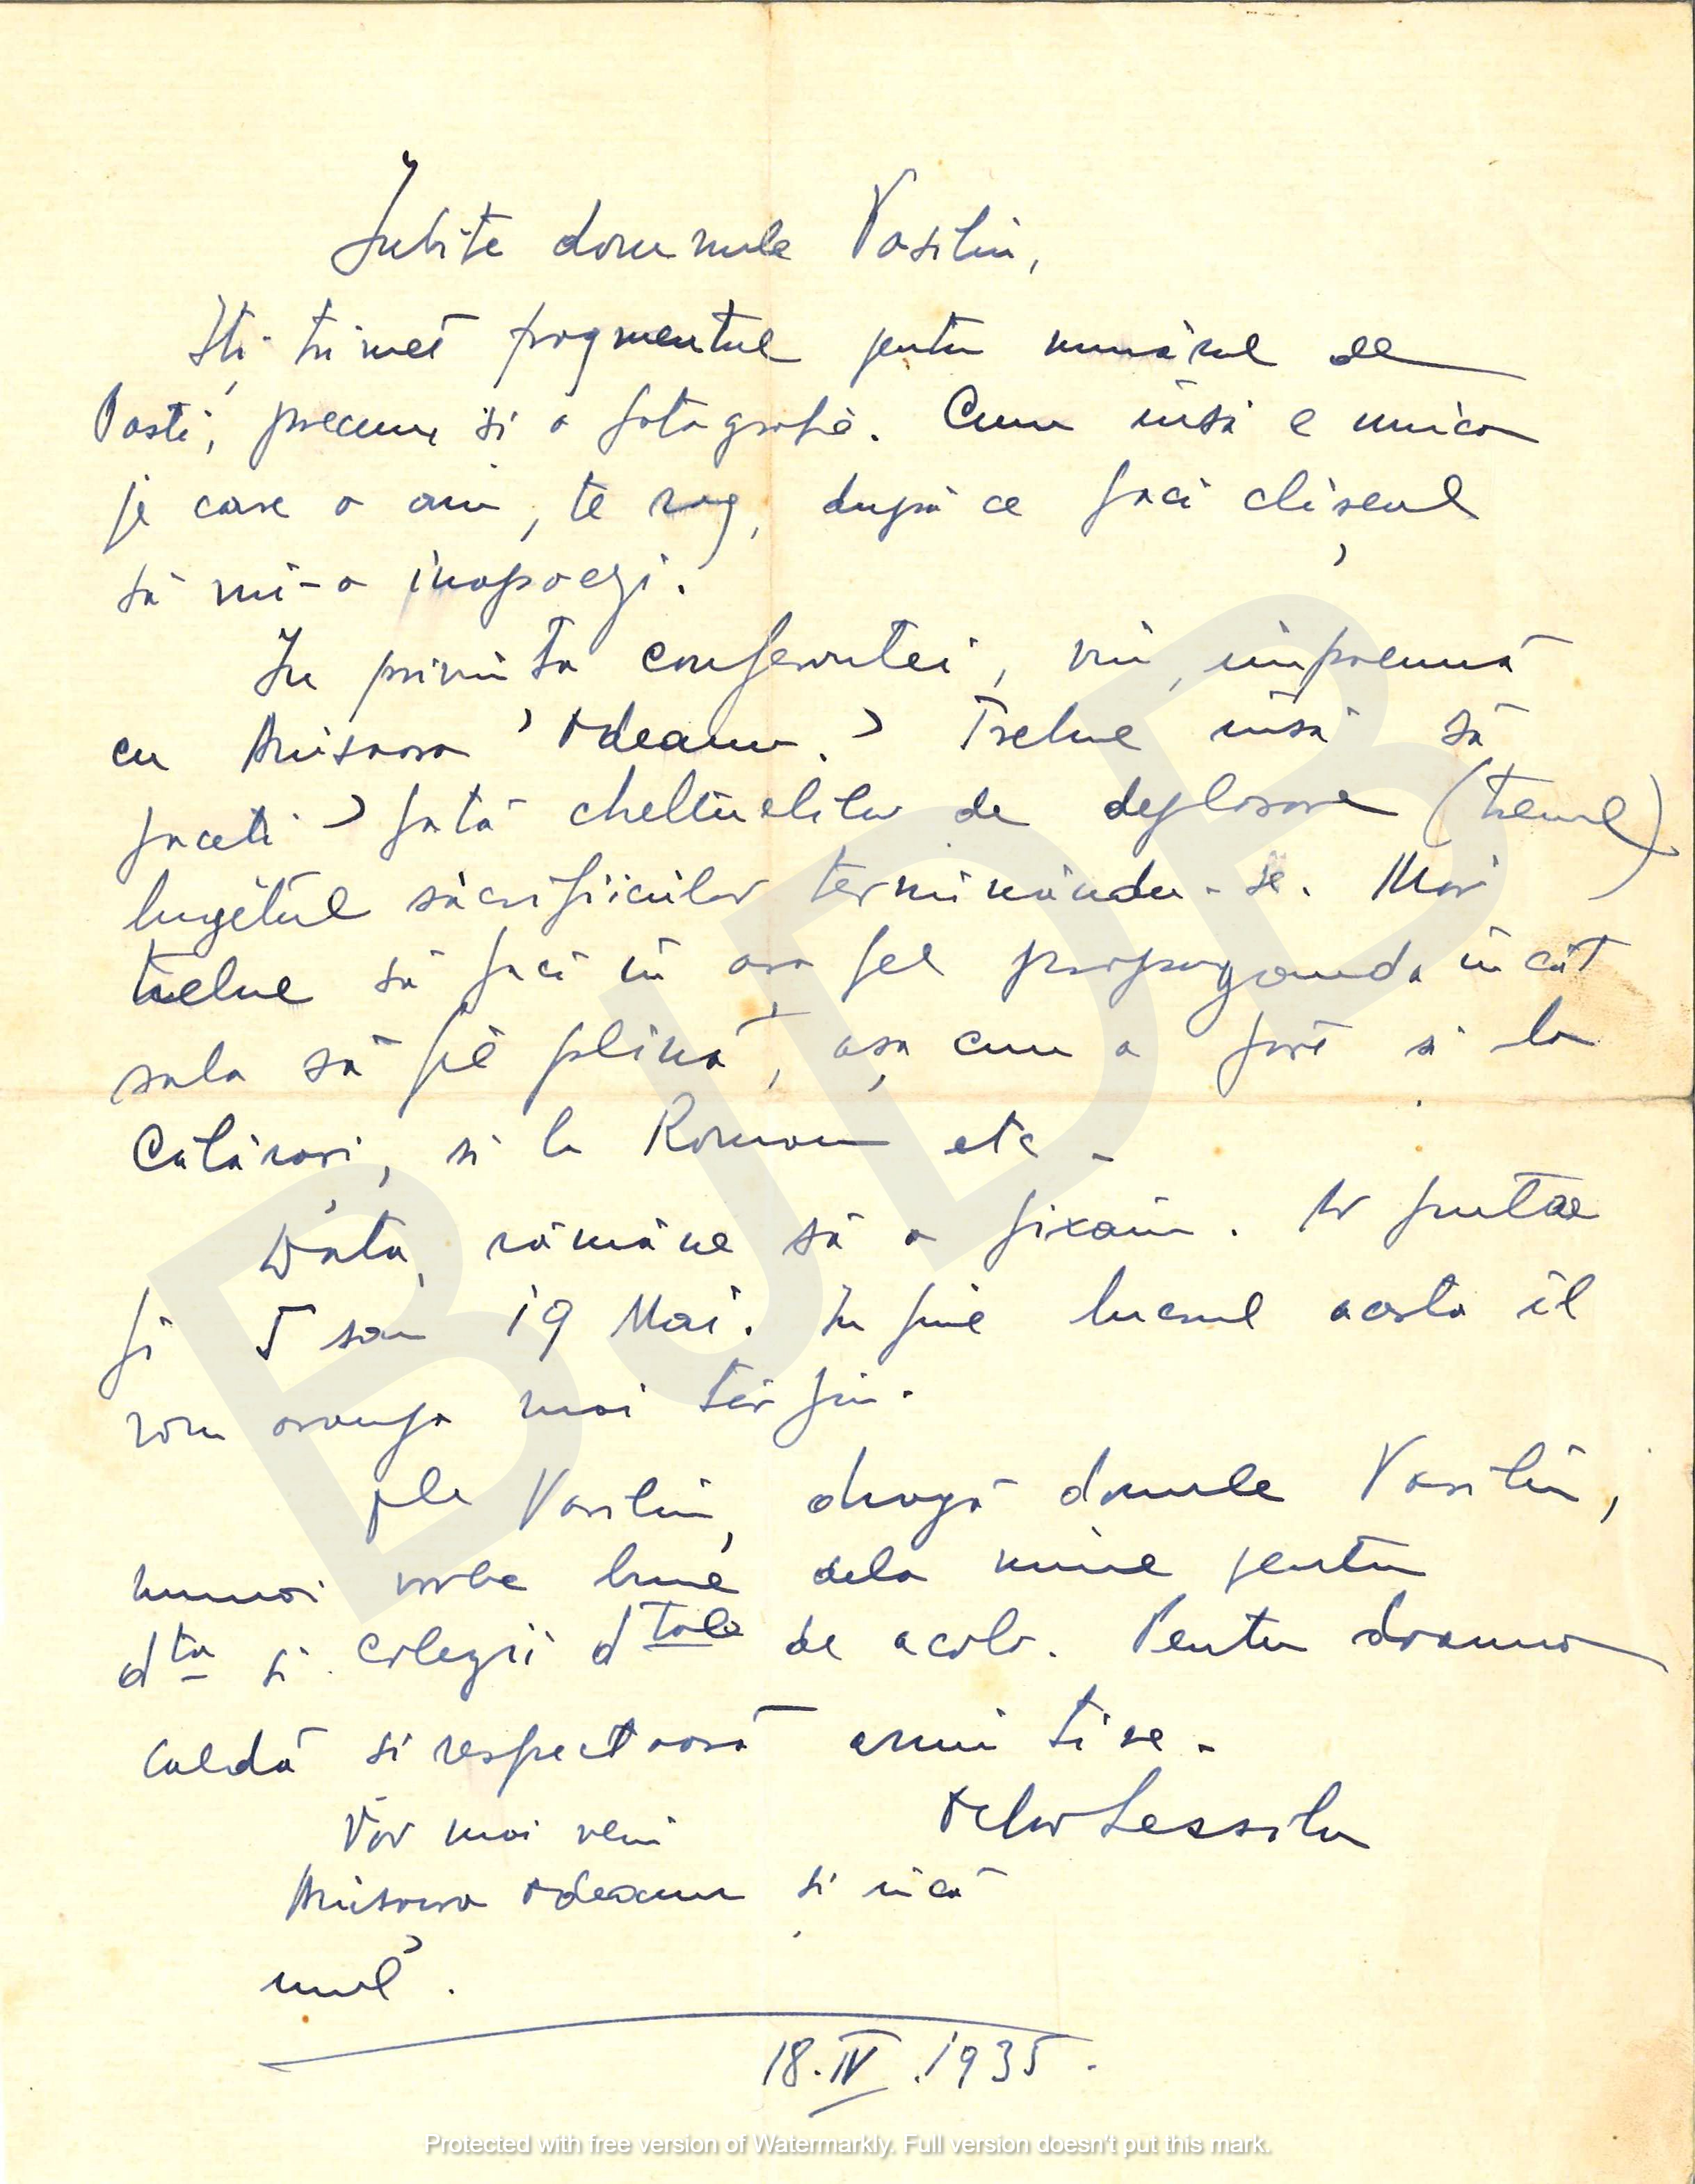 Iubite domnule Vasiliu,
Iți trimet fragmentul pentru numărul de
Paști, precum și o fotografie. Cum însă e unica
pe care o am, te rog, după ce faci clișeul
să mi-o inapoezi.
In privința conferinței, vin, împreună
cu Anișoara Odeanu. Trebue însă să
faceți față cheltuelilor de deplasare (trenul)
bugetul sacrificiilor terminându-se. Mai
trebue să faci în așa fel propaganda încât
sala să fie plină, așa cum a fost și la
Călărași, și la Roman etc.
Data, rămâne să o fixăm. Ar putea
fi 5 sau 19 Mai. In fine lucrul acesta îl
vom aranja mai târziu.
Vasiliu, dragă domnule Vasiliu,
numai vorbe bune dela mine pentru
dta și colegii dtale de acolo. Pentru doamna
caldă și respectuoasă amintire.
Vor mai veni
Anișoara Odeanu și încă
unul.
18.IV.1935.
Protected with free version of Watermarkly. Full version doesn't put this mark.
BJDB